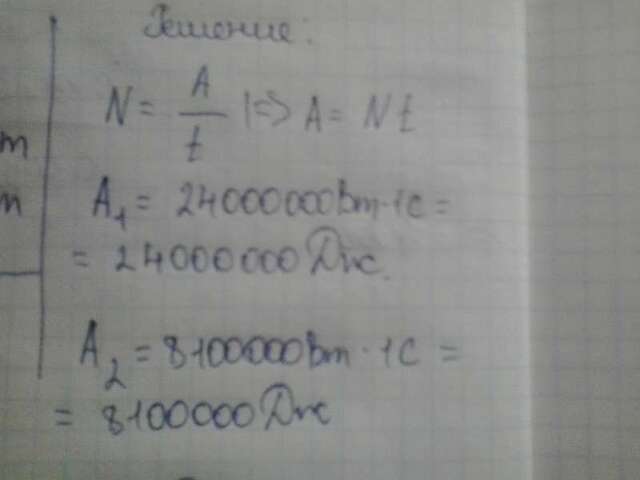 Решение:
N = A/t |=> A = Nt
т
A₁ = 24000000Вт·1с =
т
= 24000000 Дж.
A₂ = 8100000Вт · 1с =
= 8100000 Дж